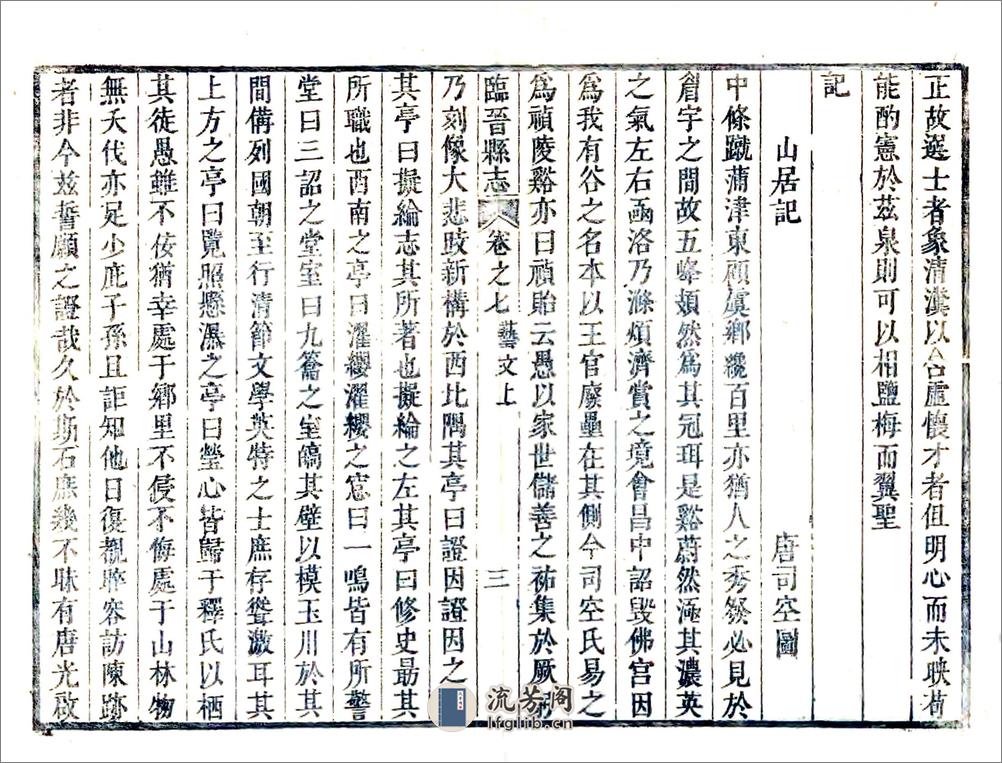 正故選士者象清濱以△台虛懷才者但明心而未映苟
能酌憲於茲泉則可以相鹽梅而翼聖
記
山居記 唐司空圖
中條蹴蒲津東顧虞鄉纔百里亦猶人之秀發必見於
眉宇之間故五峰頍然為其冠珥是谿蔚然涵其濃英
之氣左右函洛乃滌煩濟賞之境會昌中詔毀佛宮因
為我有谷之名本以王官廢壘在其側今司空氏易之
為禎陵谿亦曰禎貽云愚以家世儲善之祐集於厥躬
臨晉縣志 卷之七 藝文上 三
乃刻像大悲跂新構於西北隅其亭曰證因證因之右
其亭曰擬綸志其所著也擬綸之左其亭曰修史最其
所職也西南之亭曰濯纓濯纓之窻曰一鳴皆有所警
堂曰三詔之堂室曰九籥之室皜其壁以模玉川於其
間備列國朝至行清節文學英特之士庶存聳激耳其
上方之亭曰覽照懸瀑之亭曰瑩心皆歸于釋氏以栖
其徒愚雖不佞猶幸處于鄉里不侵不侮處于山林物
無夭伐亦足少庇子孫且詎知他日復覩睟容訪陳跡
者非今茲誓願之證哉久於斯石庶幾不昧有唐光啟
流芳阁
lfglib.cn